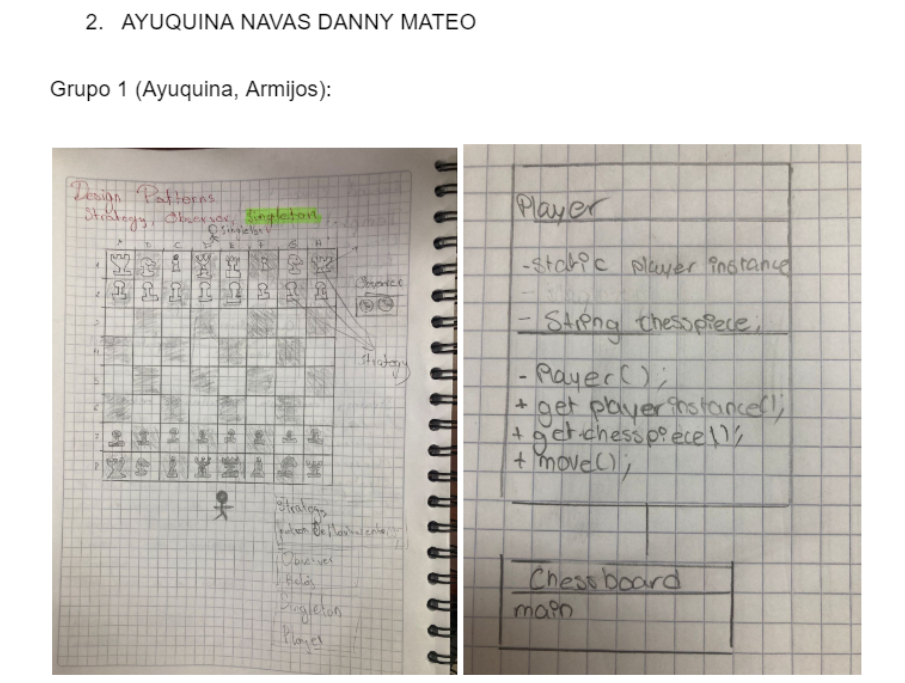 2. AYUQUINA NAVAS DANNY MATEO
Grupo 1 (Ayuquina, Armijos):
Design Patterns
Strategy, Observer, Singleton
Singleton
A B C D E F G H
1
2
3
4
5
6
7
8
Observer
Strategy
Strategy
Observer
Reloj
Singleton
Player
Player
-static player instance
- String chesspiece;
- Player();
+ get playerinstance();
+ get chesspiece();
+ move();
Chessboard
main